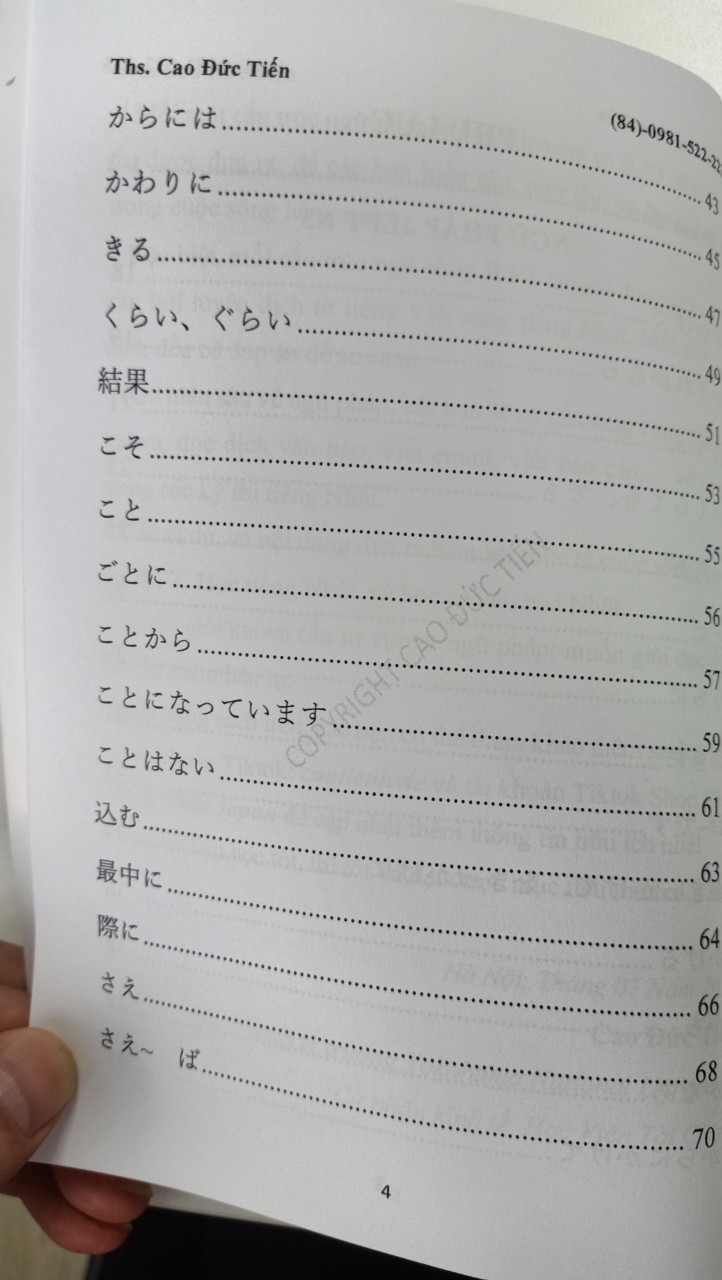 Ths. Cao Đức Tiến
(84)-0981-522-22
からには........................................43
かわりに........................................45
きる........................................47
くらい、ぐらい........................................49
結果........................................51
こそ........................................53
こと........................................55
ごとに........................................56
ことから........................................57
ことになっています........................................59
ことはない........................................61
込む........................................63
最中に........................................64
際に........................................66
さえ........................................68
さえ~　ば........................................70
COPYRIGHT CAO ĐỨC TIẾN
4